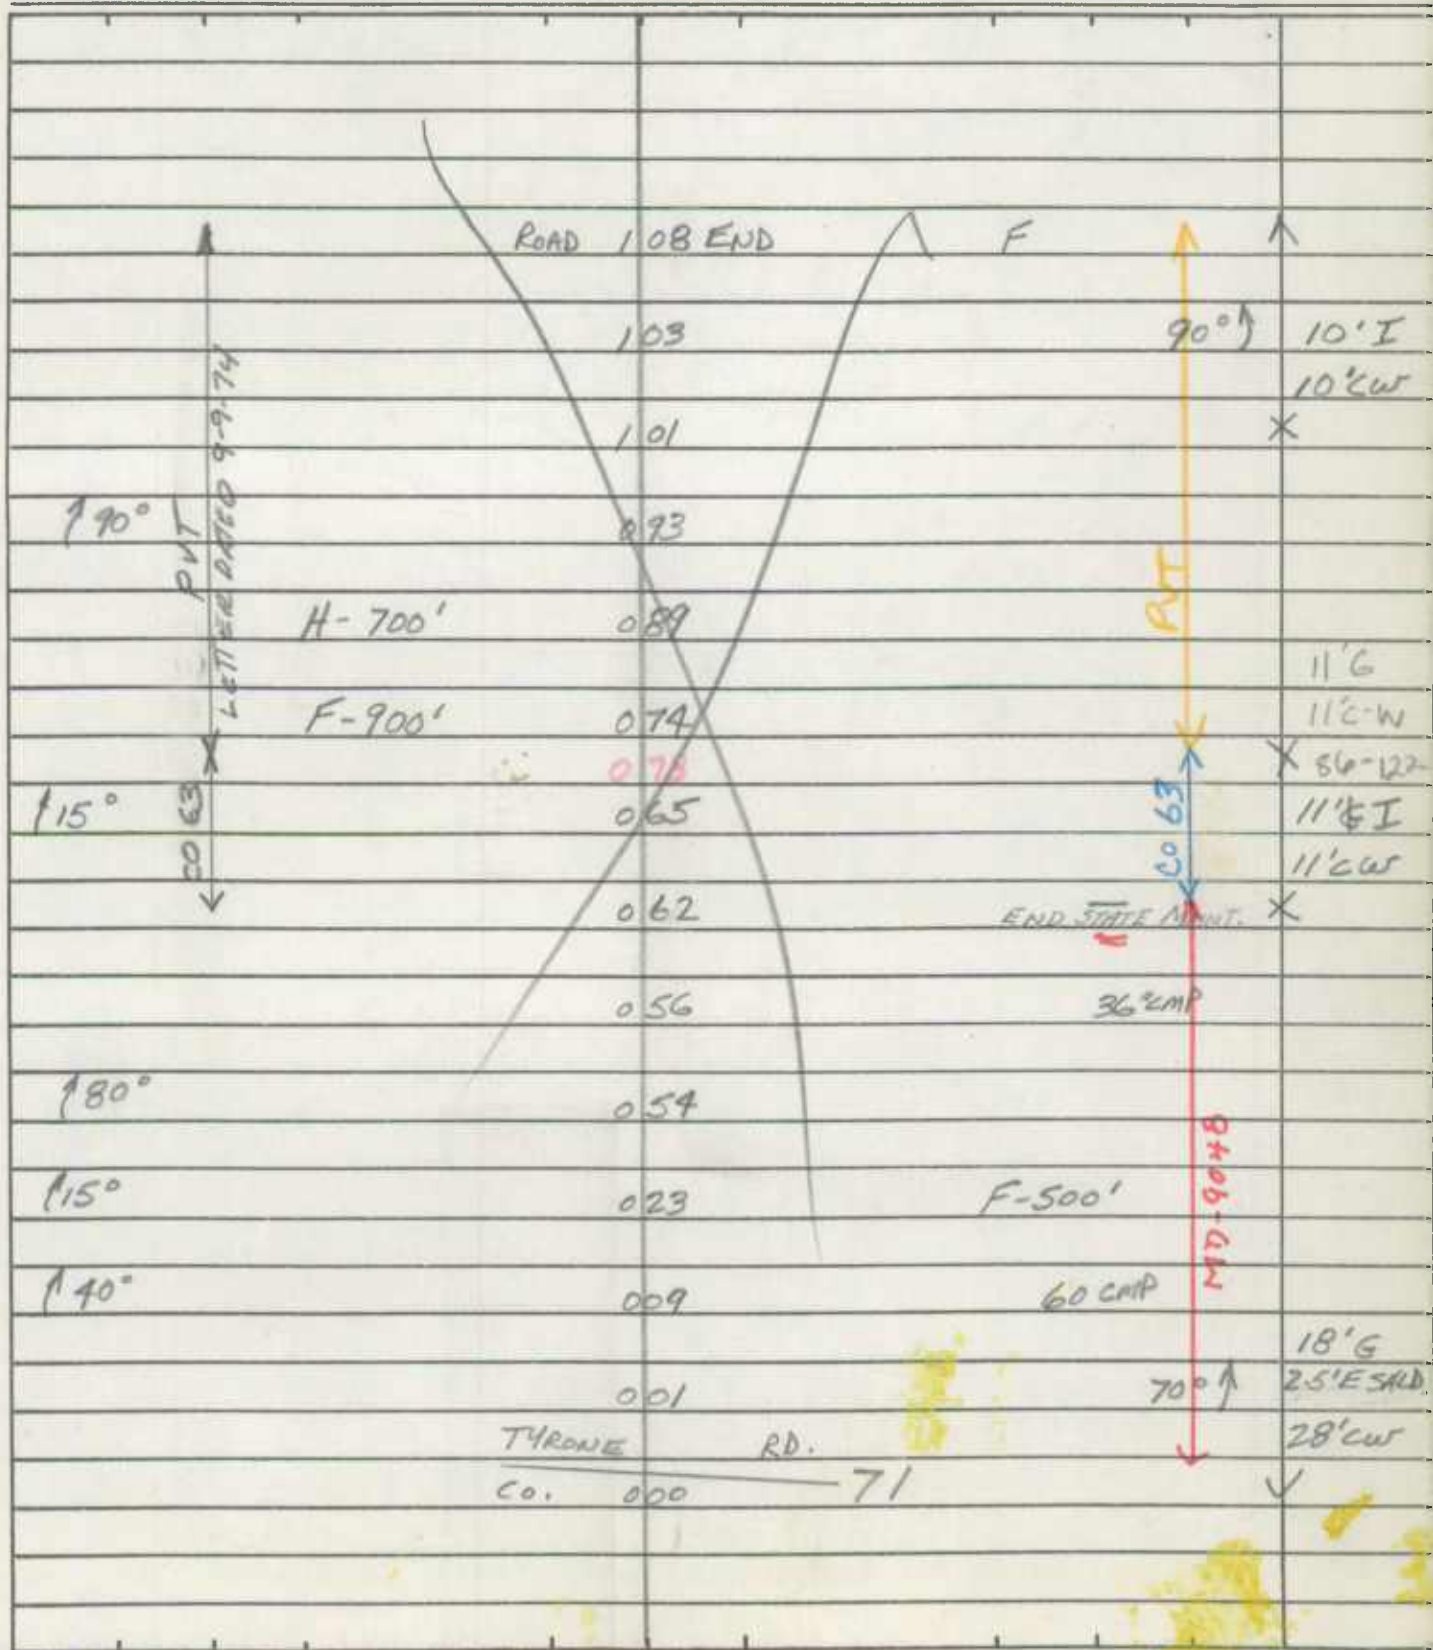 ROAD 1.08 END F
1.03 90° 10' I
10' CW
1.01 X
90° 0.93
PVT
LETTER DATED 9-9-74
PVT
H-700' 0.89
11' G
F-900' 0.74 11' C-W
X
15° 0.65 11' I
CO 63
CO 63
11' CW
0.62 END STATE MAINT. X
0.56 36" CMP
80° 0.54
MD-9048
15° 0.23 F-500'
40° 0.09 60 CMP
18' G
0.01 70° 2.5' E SHLD
TYRONE RD. 28' CW
CO. 0.00 71